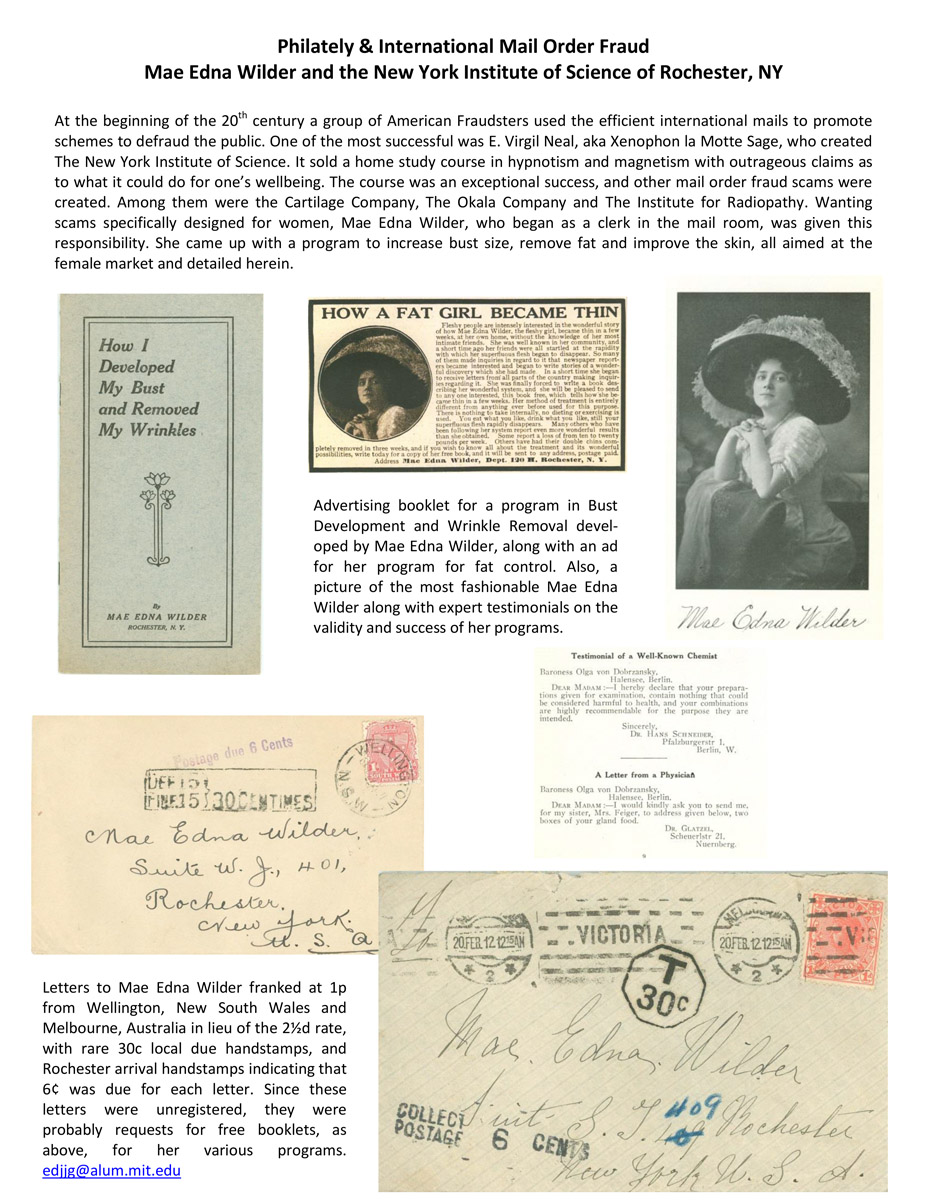 Philately & International Mail Order Fraud
Mae Edna Wilder and the New York Institute of Science of Rochester, NY
At the beginning of the 20th century a group of American Fraudsters used the efficient international mails to promote
schemes to defraud the public. One of the most successful was E. Virgil Neal, aka Xenophon la Motte Sage, who created
The New York Institute of Science. It sold a home study course in hypnotism and magnetism with outrageous claims as
to what it could do for one's wellbeing. The course was an exceptional success, and other mail order fraud scams were
created. Among them were the Cartilage Company, The Okala Company and The Institute for Radiopathy. Wanting
scams specifically designed for women, Mae Edna Wilder, who began as a clerk in the mail room, was given this
responsibility. She came up with a program to increase bust size, remove fat and improve the skin, all aimed at the
female market and detailed herein.
How I
Developed
My Bust
and Removed
My Wrinkles
By
MAE EDNA WILDER
ROCHESTER, N. Y.
HOW A FAT GIRL BECAME THIN
Fleshy people are intensely interested in the wonderful story
of how Mae Edna Wilder, the fleshy girl, became thin in a few
weeks, at her own home, without the knowledge of her most
intimate friends. She was well known in her community, and
a short time ago her friends were all startled at the rapidity
with which her superfluous flesh began to disappear. So many
of them made inquiries in regard to it that newspaper report-
ers became interested and began to write stories of a wonder-
ful discovery which she had made. In a short time she began
to receive letters from all parts of the country making inquir-
ies regarding it. She was finally forced to write a book des-
cribing her wonderful system, and she will be pleased to send
to any one interested, this book free, which tells how she be-
came thin in a few weeks. Her method of treatment is entirely
different from anything ever before used for this purpose.
There is nothing to take internally, no dieting or exercising is
used. You eat what you like, drink what you like, still your
superfluous flesh rapidly disappears. Many others who have
been following her system report even more wonderful results
than she obtained. Some report a loss of from ten to twenty
pounds per week. Others have had their double chins com-
pletely removed in three weeks, and if you wish to know all about the treatment and its wonderful
possibilities, write today for a copy of her free book, and it will be sent to any address, postage paid.
Address Mae Edna Wilder, Dept. 120 H. Rochester, N. Y.
Advertising booklet for a program in Bust
Development and Wrinkle Removal devel-
oped by Mae Edna Wilder, along with an ad
for her program for fat control. Also, a
picture of the most fashionable Mae Edna
Wilder along with expert testimonials on the
validity and success of her programs.
Mae Edna Wilder
Testimonial of a Well-Known Chemist
Baroness Olga von Dobrzansky,
Halensee, Berlin.
DEAR MADAM:—I hereby declare that your prepara-
tions given for examination, contain nothing that could
be considered harmful to health, and your combinations
are highly recommendable for the purpose they are
intended.
Sincerely,
DR. HANS SCHNEIDER,
Pfalzburgerstr 1,
Berlin, W.
A Letter from a Physician
Baroness Olga von Dobrzansky,
Halensee, Berlin.
DEAR MADAM:—I would kindly ask you to send me,
for my sister, Mrs. Feiger, to address given below, two
boxes of your gland food.
DR. GLATZEL,
Scheuerlstr 21,
Nuernberg.
Postage due 6 Cents
WELLINGTON
N.S.W
DEF 15
FINE 15 30 CENTIMES
Mae Edna Wilder,
Suite W. J., 401,
Rochester.
New York.
U. S. A
MELBOURNE
20.FEB.12.12 15AM
2
VICTORIA
20.FEB.12.12 15AM
2
T
30c
Mae. Edna. Wilder
Suit S. J. 409 Rochester
New York U. S. A.
COLLECT
POSTAGE 6 CENTS
Letters to Mae Edna Wilder franked at 1p
from Wellington, New South Wales and
Melbourne, Australia in lieu of the 2½d rate,
with rare 30c local due handstamps, and
Rochester arrival handstamps indicating that
6¢ was due for each letter. Since these
letters were unregistered, they were
probably requests for free booklets, as
above, for her various programs.
edjjg@alum.mit.edu